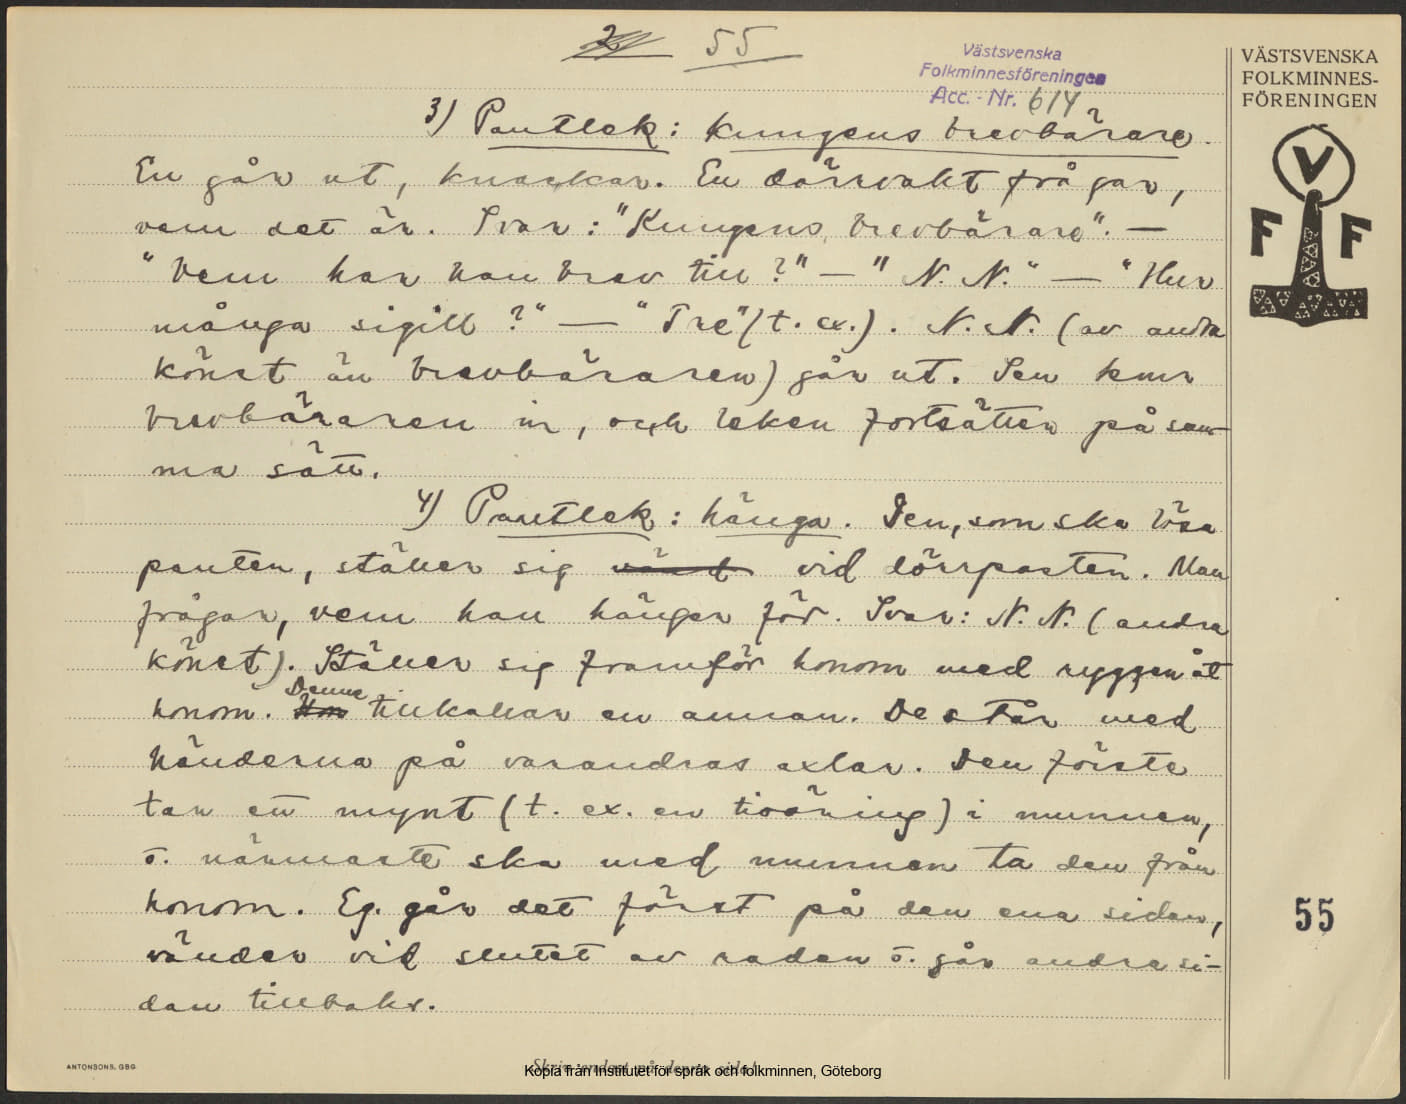 55
Västsvenska
Folkminnesföreningen
Acc. - Nr. 614
VÄSTSVENSKA
FOLKMINNES-
FÖRENINGEN
V
F F
3) Pantlek: kungens brevbärare.
En går ut, knackar. En dörrvakt frågar,
vem det är. Svar: "Kungens brevbärare". —
"Vem har han brev till?" — "N. N." — "Hur
många sigill?" — "Tre" (t. ex.). N. N. (av andra
könet än brevbäraren) går ut. Sen kmr
brevbäraren in, och leken fortsätter på sam-
ma sätt.
4) Pantlek: hänga. Den, som ska lösa
panten, ställer sig vänd vid dörrposten. Man
frågar, vem han hänger för. Svar: N. N. (andra
könet). Ställer sig framför honom med ryggen åt
honom. Hon Denne tillkallar en annan. De står med
händerna på varandras axlar. Den förste
tar ett mynt (t. ex. en tioöring) i munnen,
o. närmaste ska med munnen ta den från
honom. Eg. går det först på den ena sidan,
vänder vid slutet av raden o. går andra si-
dan tillbaks.
55
ANTONSONS, GBG
Skriv endast på denna sida!
Kopia från Institutet för språk och folkminnen, Göteborg